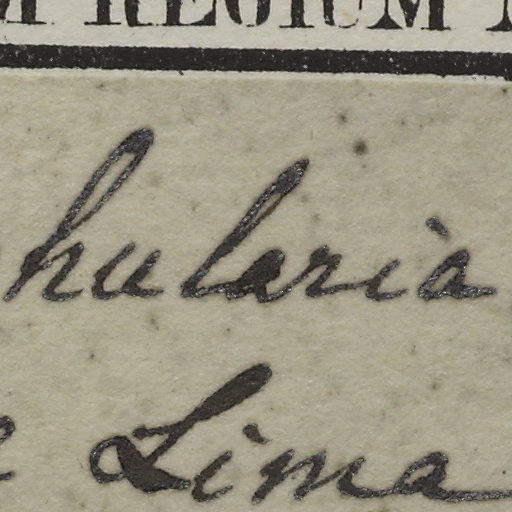 M REGIUM
hularia
Lima